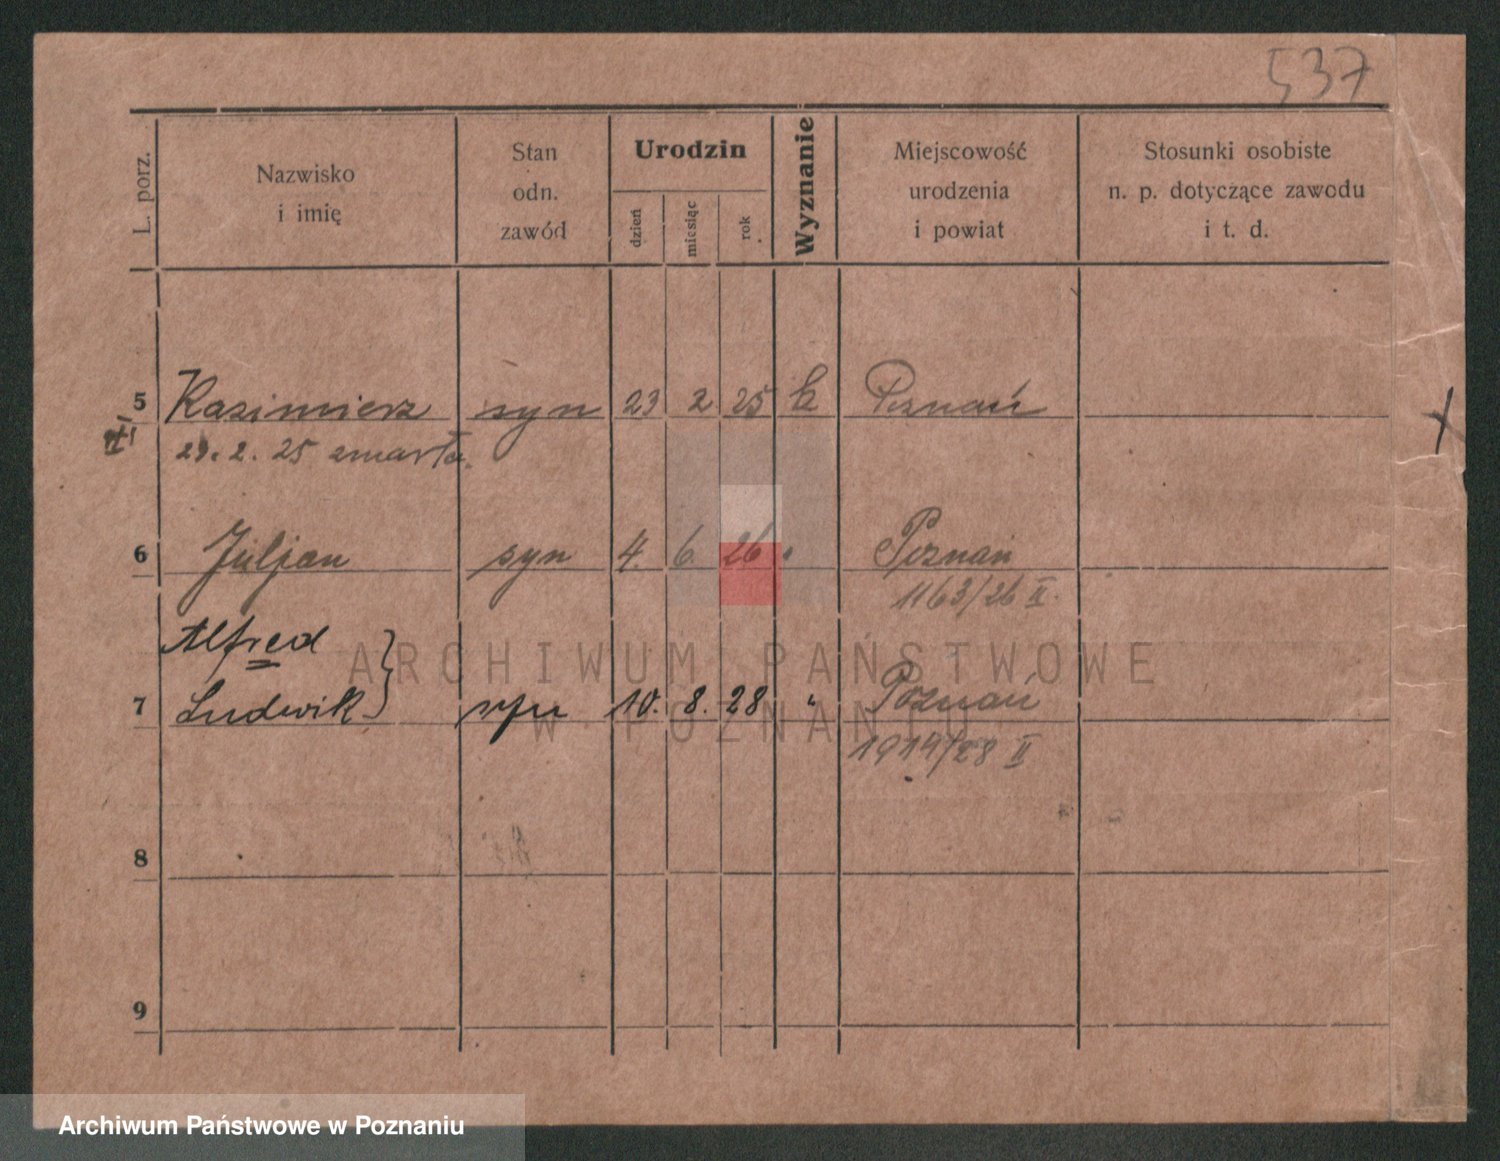 537
L. porz.
Nazwisko
i imię
Stan
odn.
zawód
Urodzin
dzień
miesiąc
rok
Wyznanie
Miejscowość
urodzenia
i powiat
Stosunki osobiste
n. p. dotyczące zawodu
i t. d.
5 Kazimierz syn 23 2 25 k Poznań
23. 2. 25 zmarła.
6 Juljan syn 4. 6. 26 Poznań
1163/26 II.
Alfred
7 Ludwik } syn 10. 8. 28 " Poznań
1914/28 II
8
9
ARCHIWUM PAŃSTWOWE
W POZNANIU
Archiwum Państwowe w Poznaniu